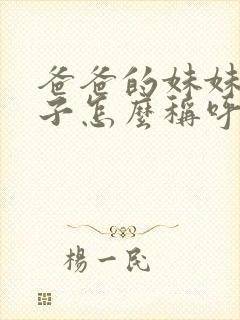 爸爸的妹妹
子怎麼稱呼
楊一民